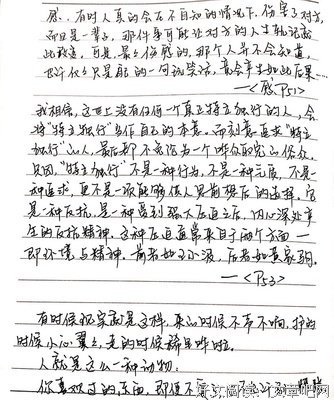 感，有时人真的会在不自知的情况下，伤害了对方，
而且是一辈子，那件事可能让对方的人生轨迹
此改变，可是，最令伤感的，那个人并不会知道，
因为他只是
的一句玩笑话，竟会产生如此后果……
—<P51>
我相信，这世上没有任何一个真正特立独行的人，会
将“特立独行”当作自己的本意。而刻意追求“特立
独行”的人，最后都不过沦为一个哗众取宠的俗众，
只因，“特立独行”不是一种行为，不是一种元素，不是
一种追求，更不是一项能够供人思前想后的选择。它
是一种反抗，是一种受到强大压迫之后，内心深处产
生的反抗精神，这种压迫通常来自于两个方面—
即环境与精神，前者如王小波，后者如麦家弱。
—<P53>
有时候拟家就是这样，来的时候不声不响，护的
时候小心翼翼，走的时候稀里哗啦。
人就是这么一种动物：
你喜欢过的东西，即使不